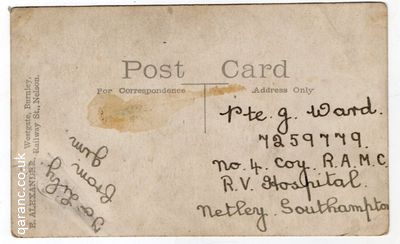 Post Card
For Correspondence
Address Only
Pte. G. Ward.
7259779.
No. 4. Coy. R.A.M.C
R.V. Hospital.
Netley. Southampton
To Lily.
from
Jim.
E. ALEXANDER, Westgate, Burnley.
Railway St., Nelson.
qaranc.co.uk